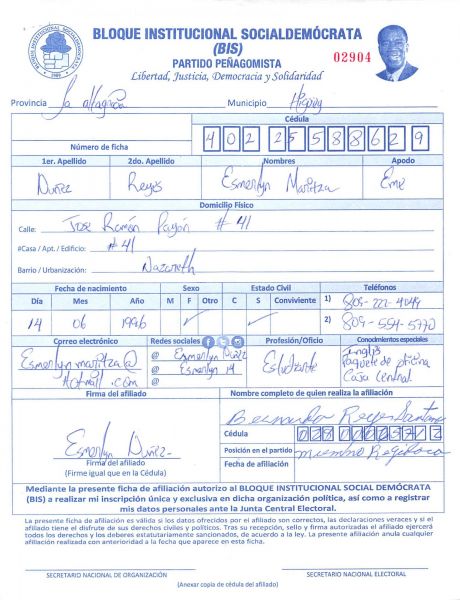 BLOQUE INSTITUCIONAL SOCIALDEMÓCRATA
(BIS)
PARTIDO PEÑAGOMISTA
Libertad, Justicia, Democracia y Solidaridad
02904
Provincia La altagracia Municipio Higüey
Cédula
Número de ficha 402 2558862 9
1er. Apellido 2do. Apellido Nombres Apodo
Nuñez Reyes Esmerlyn Maritza Eme
Domicilio Físico
Calle: Jose Ramón Payán # 41
#Casa / Apt. / Edificio: # 41
Barrio / Urbanización: Nazareth
Fecha de nacimiento Sexo Estado Civil Teléfonos
Día Mes Año M F Otro C S Conviviente 1) 809-222-4049
14 06 1996 ✓ ✓ 2) 809-554-5770
Correo electrónico Redes sociales Profesión/Oficio Conocimientos especiales
Esmerlynmaritza@ @ Esmerlyn Nuñez Estudiante Inglés
Hotmail.com @ Esmerlyn 14 Paquete de oficina
@ Caja Central
Firma del afiliado Nombre completo de quien realiza la afiliación
Bernarda Reyes Santana
Esmerlyn Nuñez Cédula
Firma del afiliado Posición en el partido miembro
(Firme igual que en la Cédula) Fecha de afiliación
Mediante la presente ficha de afiliación autorizo al BLOQUE INSTITUCIONAL SOCIAL DEMÓCRATA
(BIS) a realizar mi inscripción única y exclusiva en dicha organización política, así como a registrar
mis datos personales ante la Junta Central Electoral.
La presente afiliación es válida si los datos ofrecidos por el afiliado son correctos, las declaraciones veraces y si el
afiliado tiene el disfrute de sus derechos civiles y políticos. Tras su recepción, sello y firma autorizadas el afiliado ejercerá
todos los derechos y los deberes estatutariamente sancionados, de acuerdo a la ley. La presente afiliación anula cualquier
afiliación realizada con anterioridad a la fecha que aparece en esta ficha.
SECRETARIO NACIONAL DE ORGANIZACIÓN SECRETARIO NACIONAL ELECTORAL
(Anexar copia de cédula del afiliado)